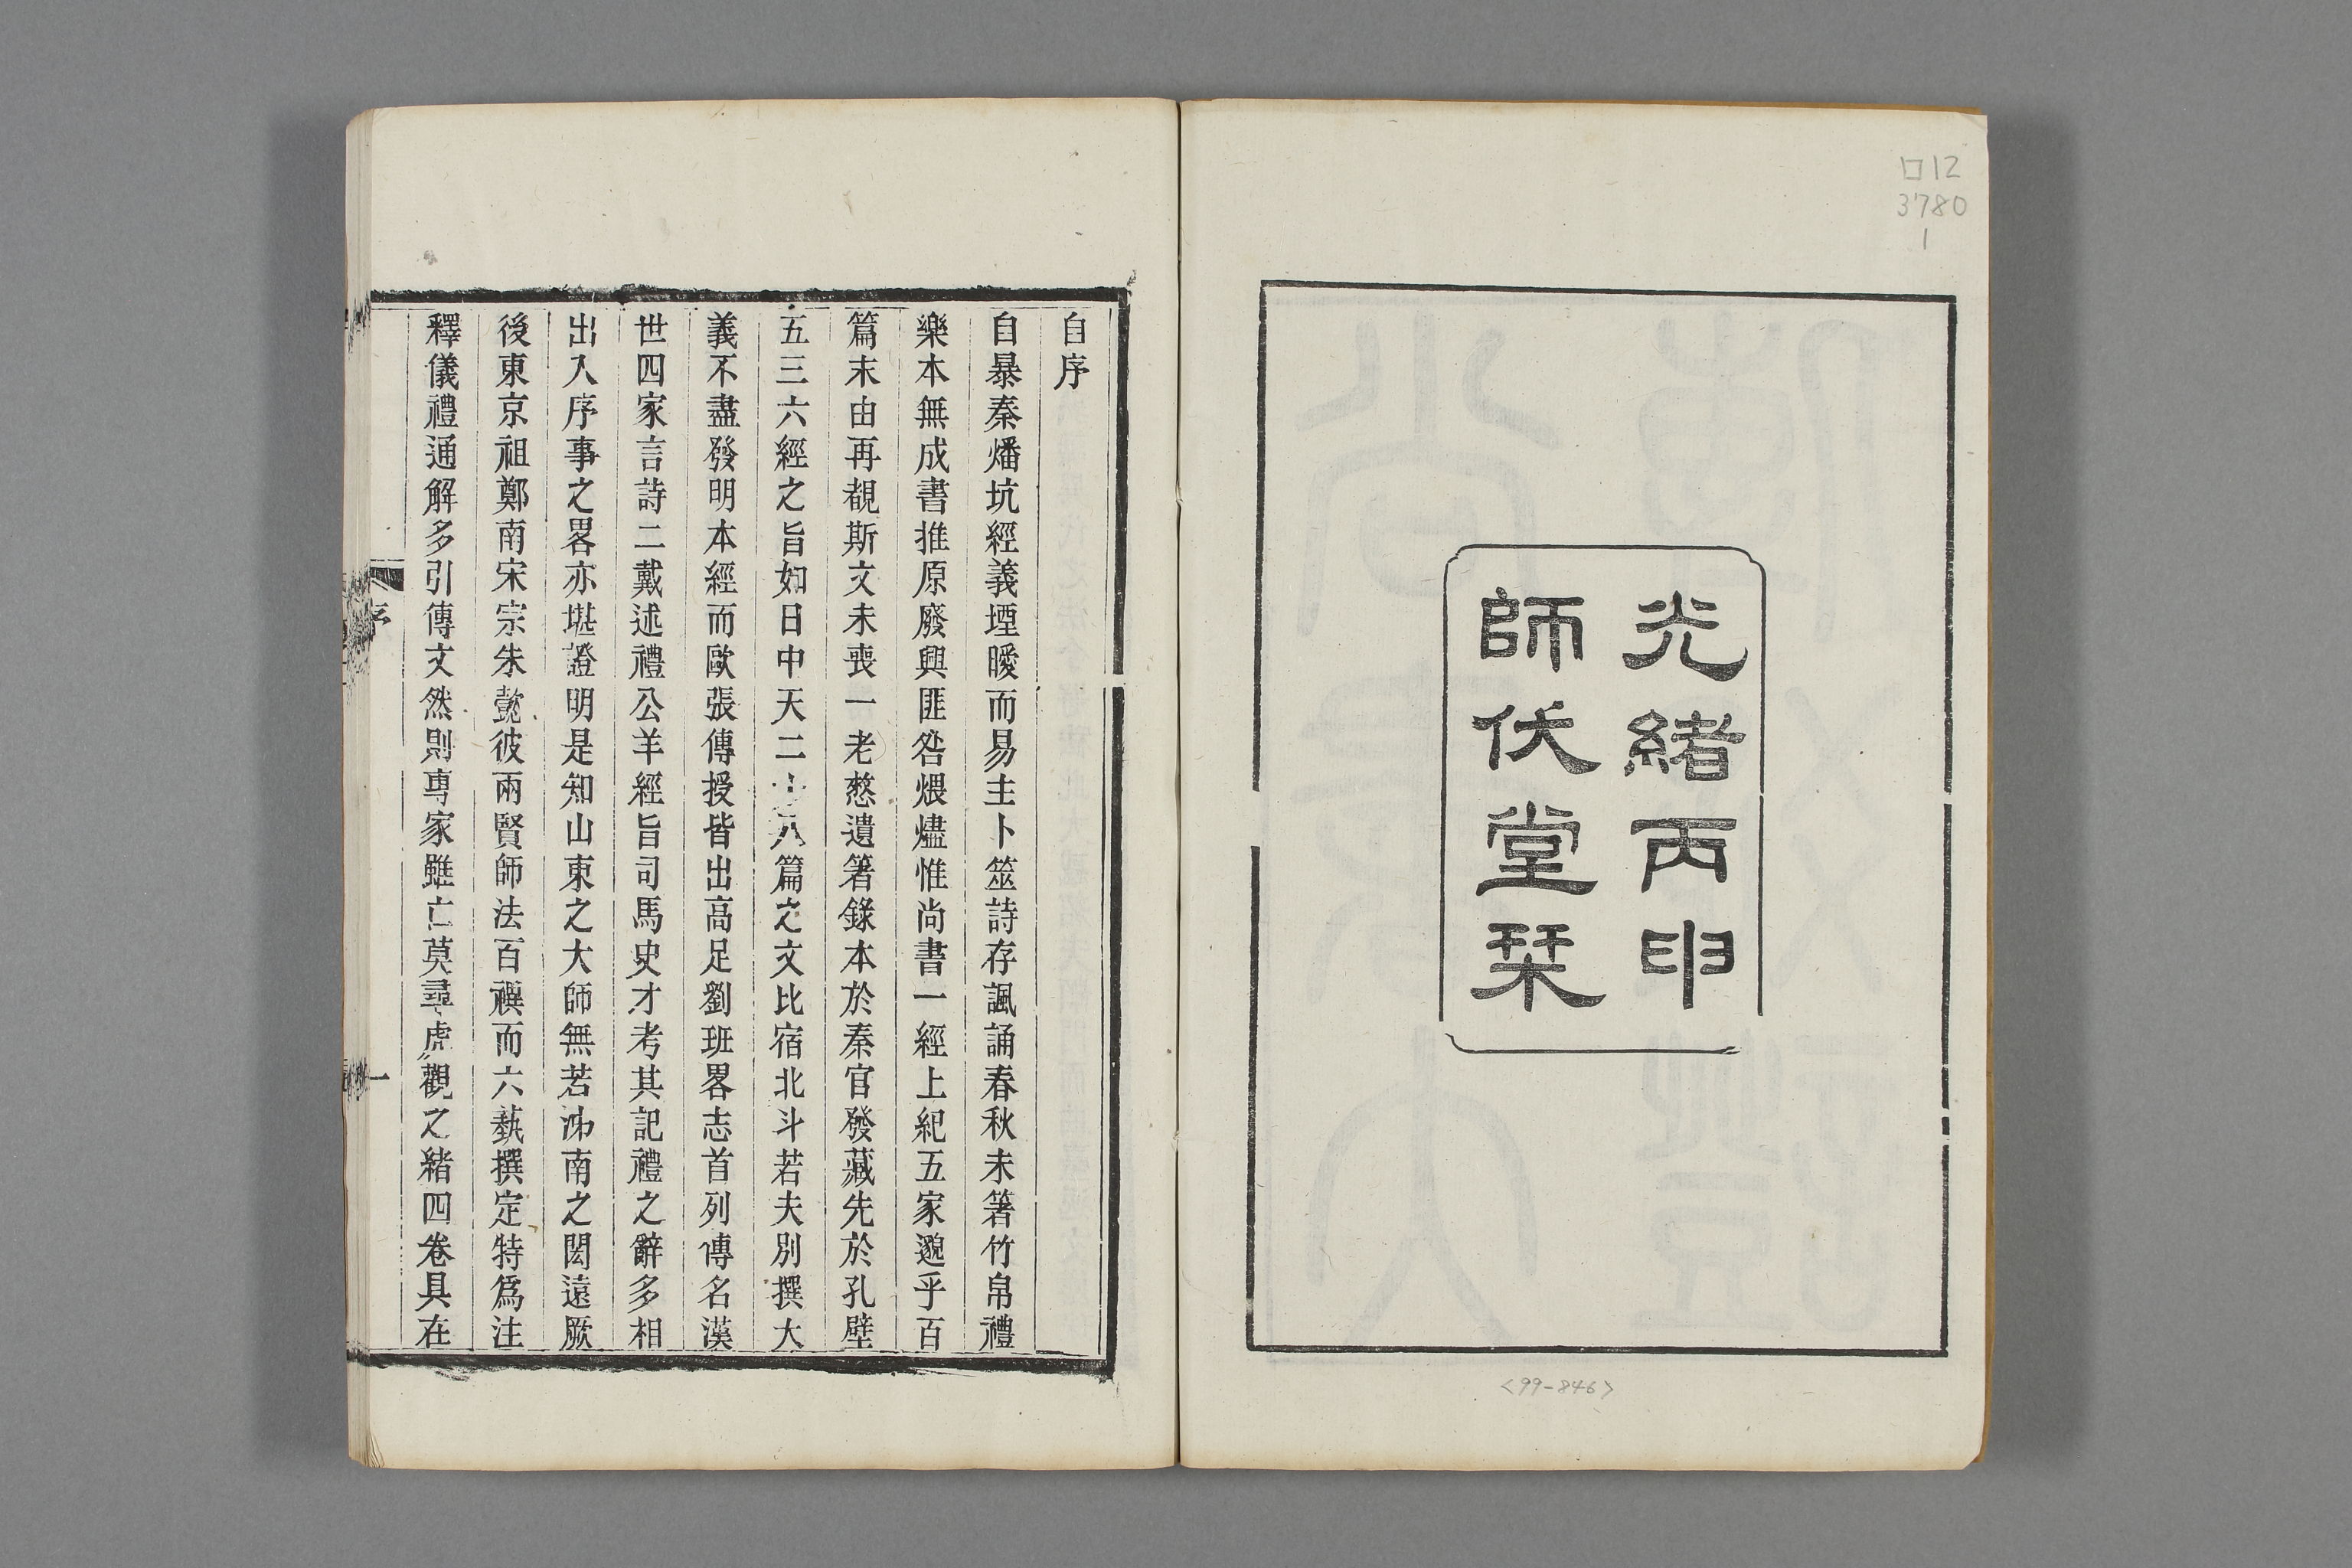 口12
3780
1
光緒丙申
師伏堂栞
<99-846>
自序
自暴秦燔坑經義堙曖而易主卜筮詩存諷誦春秋未箸竹帛禮
樂本無成書推原廢興匪咎煨燼惟尚書一經上紀五家邈乎百
篇末由再覩斯文未喪一老憖遺箸錄本於秦官發藏先於孔壁
五三六經之旨如日中天二十八篇之文比宿北斗若夫別撰大
義不盡發明本經而歐張傳授皆出高足劉班畧志首列傳名漢
世四家言詩二戴述禮公羊經旨司馬史才考其記禮之辭多相
出入序事之畧亦堪證明是知山東之大師無若沛南之閎遠厥
後東京祖鄭南宋宗朱懿彼兩賢師法百禩而六藝撰定特爲注
釋儀禮通解多引傳文然則專家雖亡莫尋虎觀之緒四卷具在
序
一